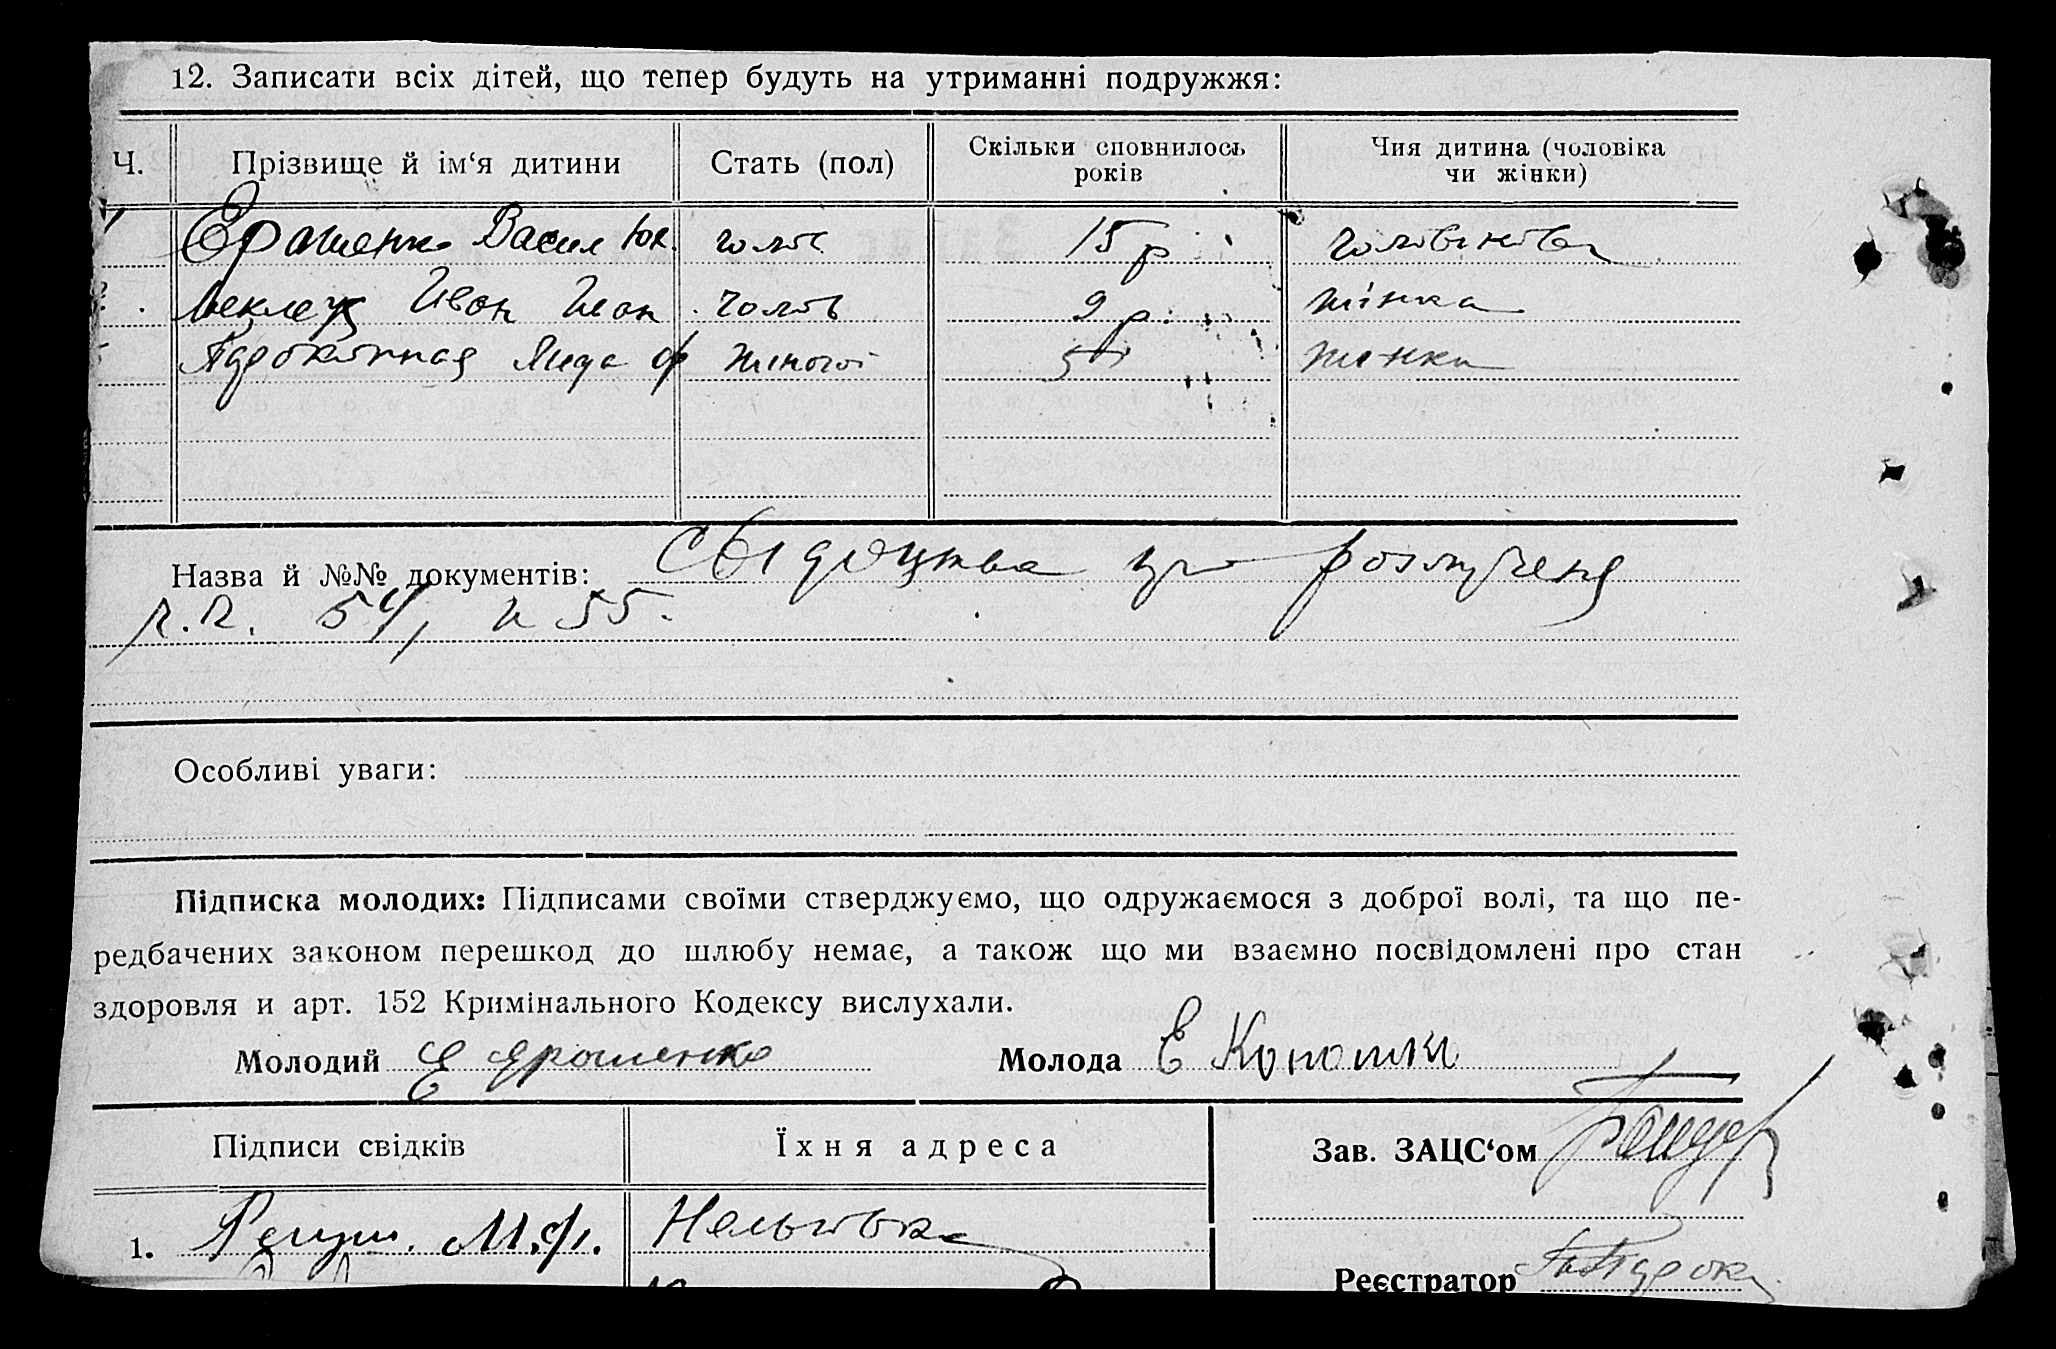 12. Записати всіх дітей, що тепер будуть на утриманні подружжя:
Ч. Прізвище й ім‘я дитини Стать (пол) Скільки сповнилось років Чия дитина (чоловіка чи жінки)
1 Васил Юх. чолов 15 р
Иван Иван чолов 9 р. жінка
Лида ф 5 жинка
Назва й №№ документів: свідоцтва про розлученя
54, и 55.
Особливі уваги:
Підписка молодих: Підписами своїми стверджуємо, що одружаємося з доброї волі, та що пе-
редбачених законом перешкод до шлюбу немає, а також що ми взаємно посвідомлені про стан
здоровля и арт. 152 Кримінального Кодексу вислухали.
Молодий Е Ярошенко Молода Е
Підписи свідків Їхня адреса Зав. ЗАЦС‘ом
1. М.Ф.
Реєстратор